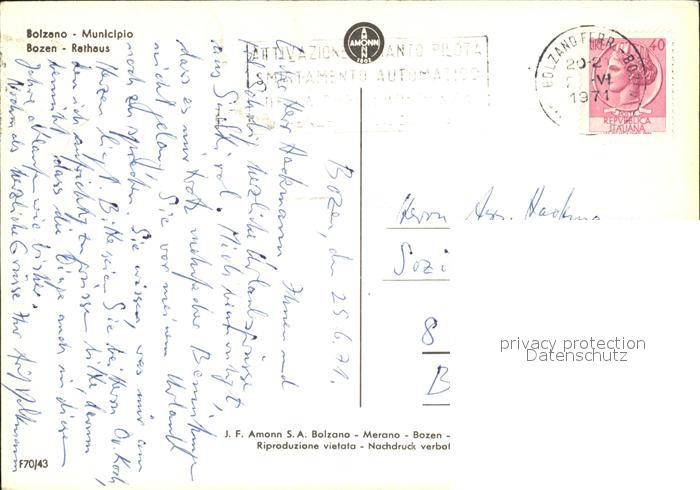 Bolzano - Municipio
Bozen - Rathaus
AMONN
1802
ATTIVAZIONE IMPIANTO PILOTA
SMISTAMENTO AUTOMATICO
BOLZANO FERR.
20-2
VI
1971
40
REPVBBLICA
ITALIANA
Bozen, den 25.6.71.
Herr Hackmann, Ihnen und
herzliche Urlaubsgrüsse
aus Südtirol. Mich beunruhigt,
dass es mir trotz mehrfacher Bemühungen
nicht gelang, Sie vor meinem Urlaub
noch zu sprechen. Sie wissen, was mir am
Herzen liegt. Bitte seien Sie bei Herrn Dr. Koch,
den ich aufrichtig zu grüssen bitte, darum
bemüht, dass die Dinge auch in diesem
Jahre ablaufen wie bisher.
Nochmals herzliche Grüsse Ihr
Herrn
Sozi
8
B
privacy protection
Datenschutz
J. F. Amonn S.A. Bolzano - Merano - Bozen -
Riproduzione vietata - Nachdruck verbot
F70/43